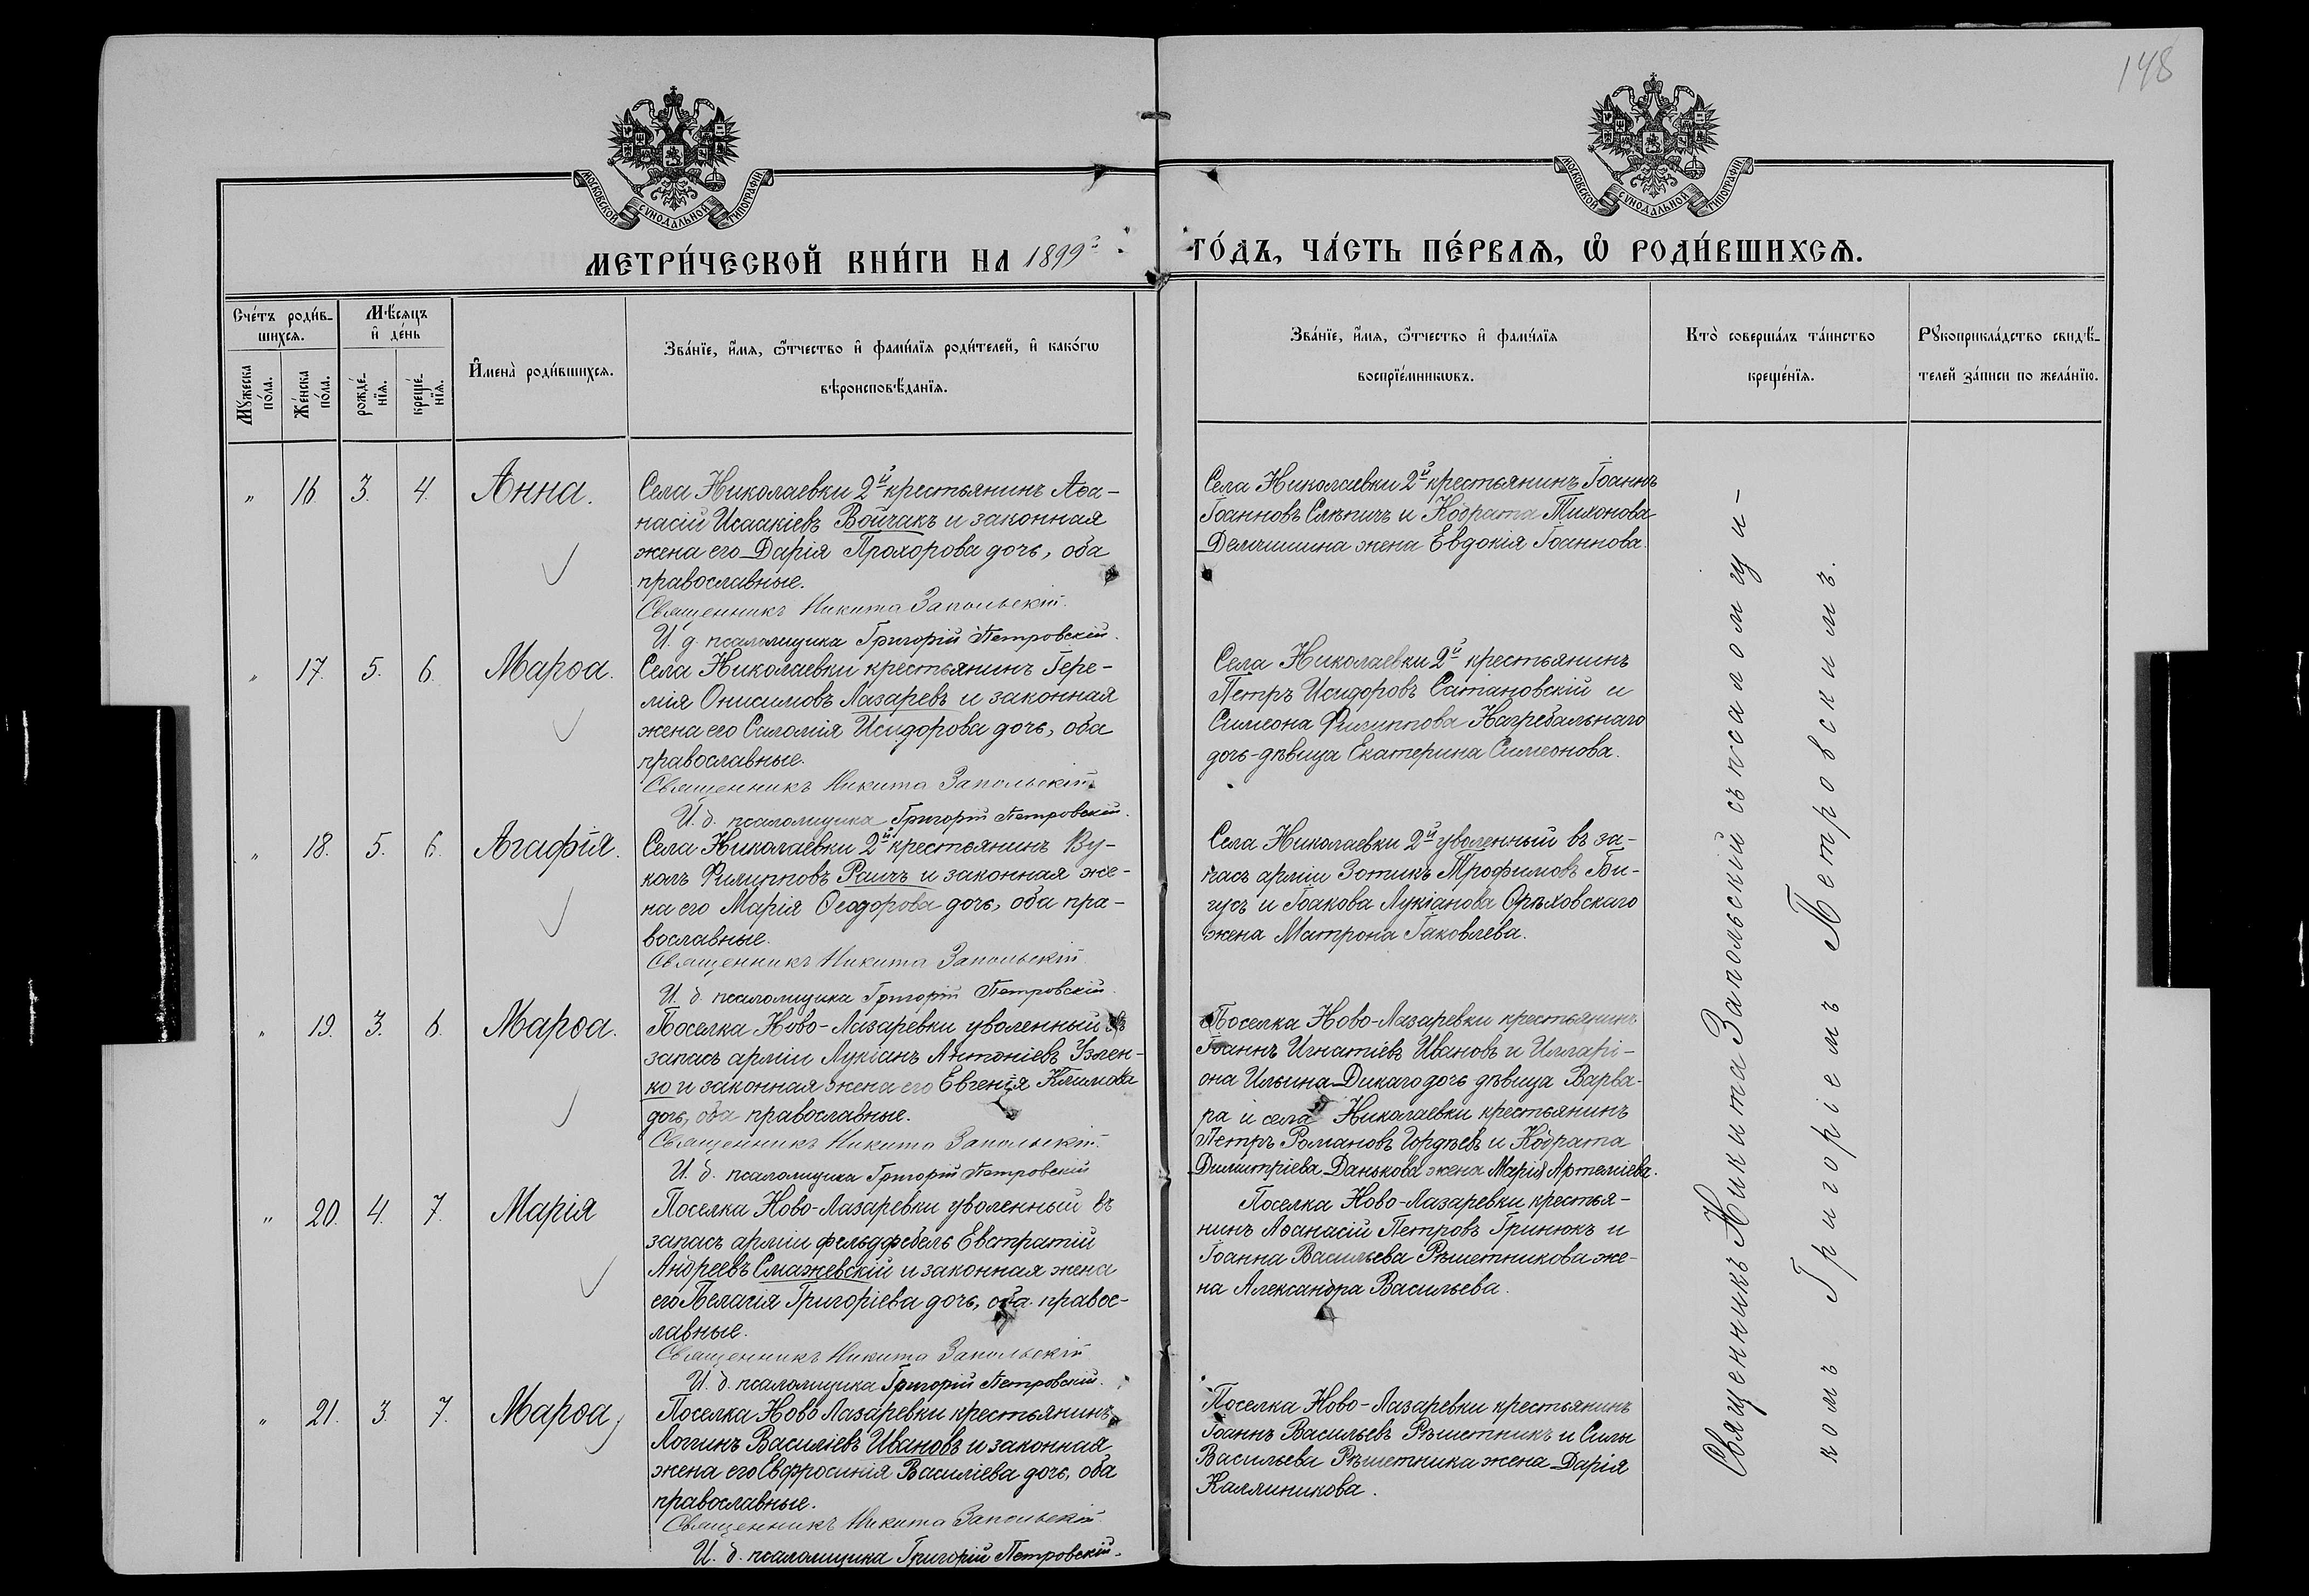 148
МОСКОВСКОЙ СѴНОДАЛЬНОЙ ТИПОГРАФІИ
МОСКОВСКОЙ СѴНОДАЛЬНОЙ ТИПОГРАФІИ
МЕТРИ́ЧЕСКОЙ КНИ́ГИ НА 1899й ГО́ДЪ, ЧА́СТЬ ПЕ́РВАѦ, Ѡ҆ РОДИ́ВШИХСѦ.
Сче́тъ роди́в-
шихсѧ.
Мꙋ́жеска по́ла.
Же́нска по́ла.
Мѣ́сѧцъ
и҆ де́нь
рожде́-
нїѧ.
креще́-
нїѧ.
И҆мена̀ роди́вшихсѧ.
Зва́нїе, и҆́мѧ, ѻ҆́тчество и҆ фами́лїѧ роди́телей, и҆ како́гѡ
вѣроисповѣ́данїѧ.
Зва́нїе, и҆́мѧ, ѻ҆́тчество и҆ фами́лїѧ
воспрїе́мникѡвъ.
Кто̀ соверша́лъ та́инство
креще́нїѧ.
Рꙋкоприкла́дство свидѣ́-
телей за́писи по жела́нїю.
" 16. 3. 4. Анна.
Села Николаевки 2й крестьянинъ Аѳа-
насій Исаакіевъ Войчакъ и законная
жена его Дарія Прохорова дочь, оба
православные.
Священникъ Никита Запольскій.
И. д. псаломщика Григорій Петровскій.
Села Николаевки 2й крестьянинъ Іоаннъ
Іоанновъ Слѣпичъ и Кодрата Тихонова
Демчишина жена Евдокія Іоаннова.
" 17. 5. 6. Марѳа.
Села Николаевки крестьянинъ Іере-
мія Онисимовъ Лазаревъ и законная
жена его Саломія Исидорова дочь, оба
православные.
Священникъ Никита Запольскій.
И. д. псаломщика Григорій Петровскій.
Села Николаевки 2й крестьянинъ
Петръ Исидоровъ Сатановскій и
Симеона Филиппова Нагребальнаго
дочь-дѣвица Екатерина Симеонова.
" 18. 5. 6. Агафія.
Села Николаевки 2й крестьянинъ Ву-
колъ Филипповъ Раичъ и законная же-
на его Марія Ѳеодорова дочь, оба пра-
вославные.
Священникъ Никита Запольскій
И. д. псаломщика Григорій Петровскій.
Села Николаевки 2й уволенный въ за-
пасъ арміи Зотикъ Трофимовъ Би-
гусъ и Іоакова Лукіанова Орѣховскаго
жена Матрона Іаковлева.
" 19. 3. 6. Марѳа.
Поселка Ново-Лазаревки уволенный въ
запасъ арміи Лукіанъ Антоніевъ Узлен-
ко и законная жена его Евгенія Климова
дочь, оба православные.
Священникъ Никита Запольскій.
И. д. псаломщика Григорій Петровскій
Поселка Ново-Лазаревки крестьянинъ
Іоаннъ Игнатіевъ Ивановъ и Илларі-
она Ильина Дикаго дочь дѣвица Варва-
ра и села Николаевки крестьянинъ
Петръ Романовъ Гордѣевъ и Кодрата
Димитріева Данькова жена Марія Артеміева.
" 20. 4. 7. Марія
Поселка Ново-Лазаревки уволенный въ
запасъ арміи фельдфебель Евстратій
Андреевъ Смажевскій и законная жена
его Пелагія Григоріева дочь, оба правос-
лавные.
Священникъ Никита Запольскій
И. д. псаломщика Григорій Петровскій.
Поселка Ново-Лазаревки крестья-
нинъ Аѳанасій Петровъ Гринюкъ и
Іоанна Васильева Рѣшетникова же-
на Александра Васильева.
" 21. 3. 7. Марѳа
Поселка Ново Лазаревки крестьянинъ
Логгинъ Василіевъ Ивановъ и законная
жена его Евфросинія Василіева дочь, оба
православные.
Священникъ Никита Запольскій
И. д. псаломщика Григорій Петровскій.
Поселка Ново-Лазаревки крестьянинъ
Іоаннъ Васильевъ Рѣшетникъ и Силы
Васильева Рѣшетника жена Дарія
Каллиникова.
Священникъ Никита Запольскій съ псаломщи-
комъ Григоріемъ Петровскимъ.